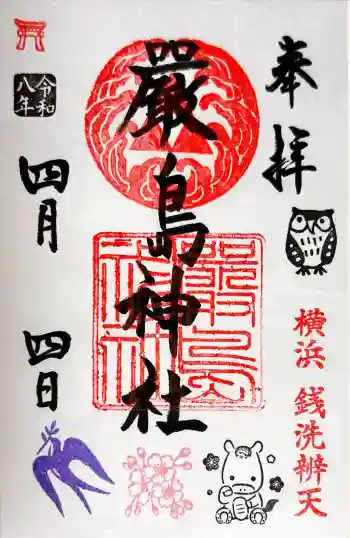 奉拝
横浜 銭洗辨天
嚴島神社
嚴島神社
令和八年
四月四日